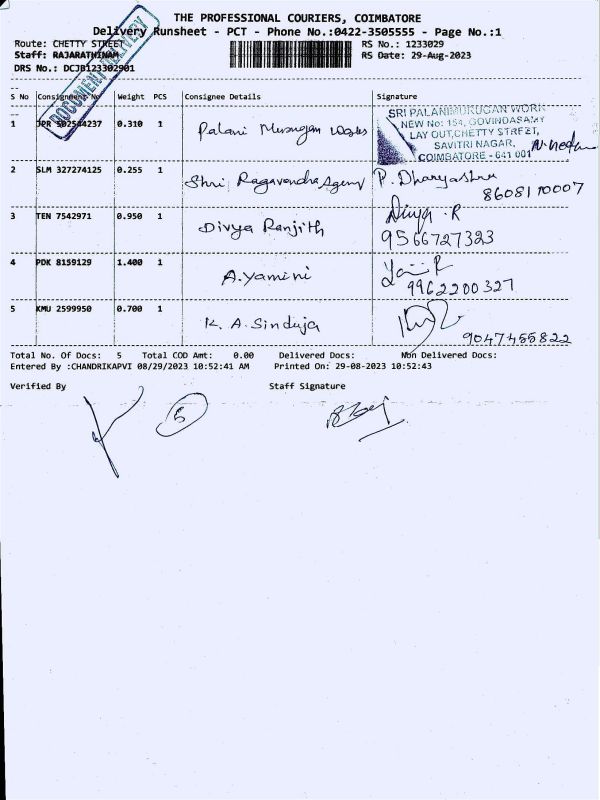 THE PROFESSIONAL COURIERS, COIMBATORE
Delivery Runsheet - PCT - Phone No.:0422-3505555 - Page No.:1
Route: CHETTY STREET
RS No.: 1233029
Staff: RAJARATHINAM
RS Date: 29-Aug-2023
DRS No.: DCJB123302901
DOCUMENT DELIVERY
S No Consignment No Weight PCS Consignee Details Signature
1 JPR 502544237 0.310 1 Palani Murugan Works
SRI PALANIMURUGAN WORK
NEW No: 154, GOVINDASAMY
LAY OUT,CHETTY STREET,
SAVITRI NAGAR,
COIMBATORE - 641 001
2 SLM 327274125 0.255 1 Shri, Ragavendra Agency P. Dharyashree
8608170007
3 TEN 7542971 0.950 1 Divya Ranjith Divya . R
9566727323
4 PDK 8159129 1.400 1 A.Yamini
9962200327
5 KMU 2599950 0.700 1 K. A. Sinduja
9047455822
Total No. Of Docs: 5 Total COD Amt: 0.00 Delivered Docs: Non Delivered Docs:
Entered By :CHANDRIKAPVI 08/29/2023 10:52:41 AM Printed On: 29-08-2023 10:52:43
Verified By Staff Signature
5